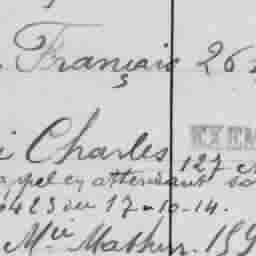 Français 26
EXEM
i Charles 127
appel en attendant so
6423 du 17-10-14.
Mie Mathur. 159